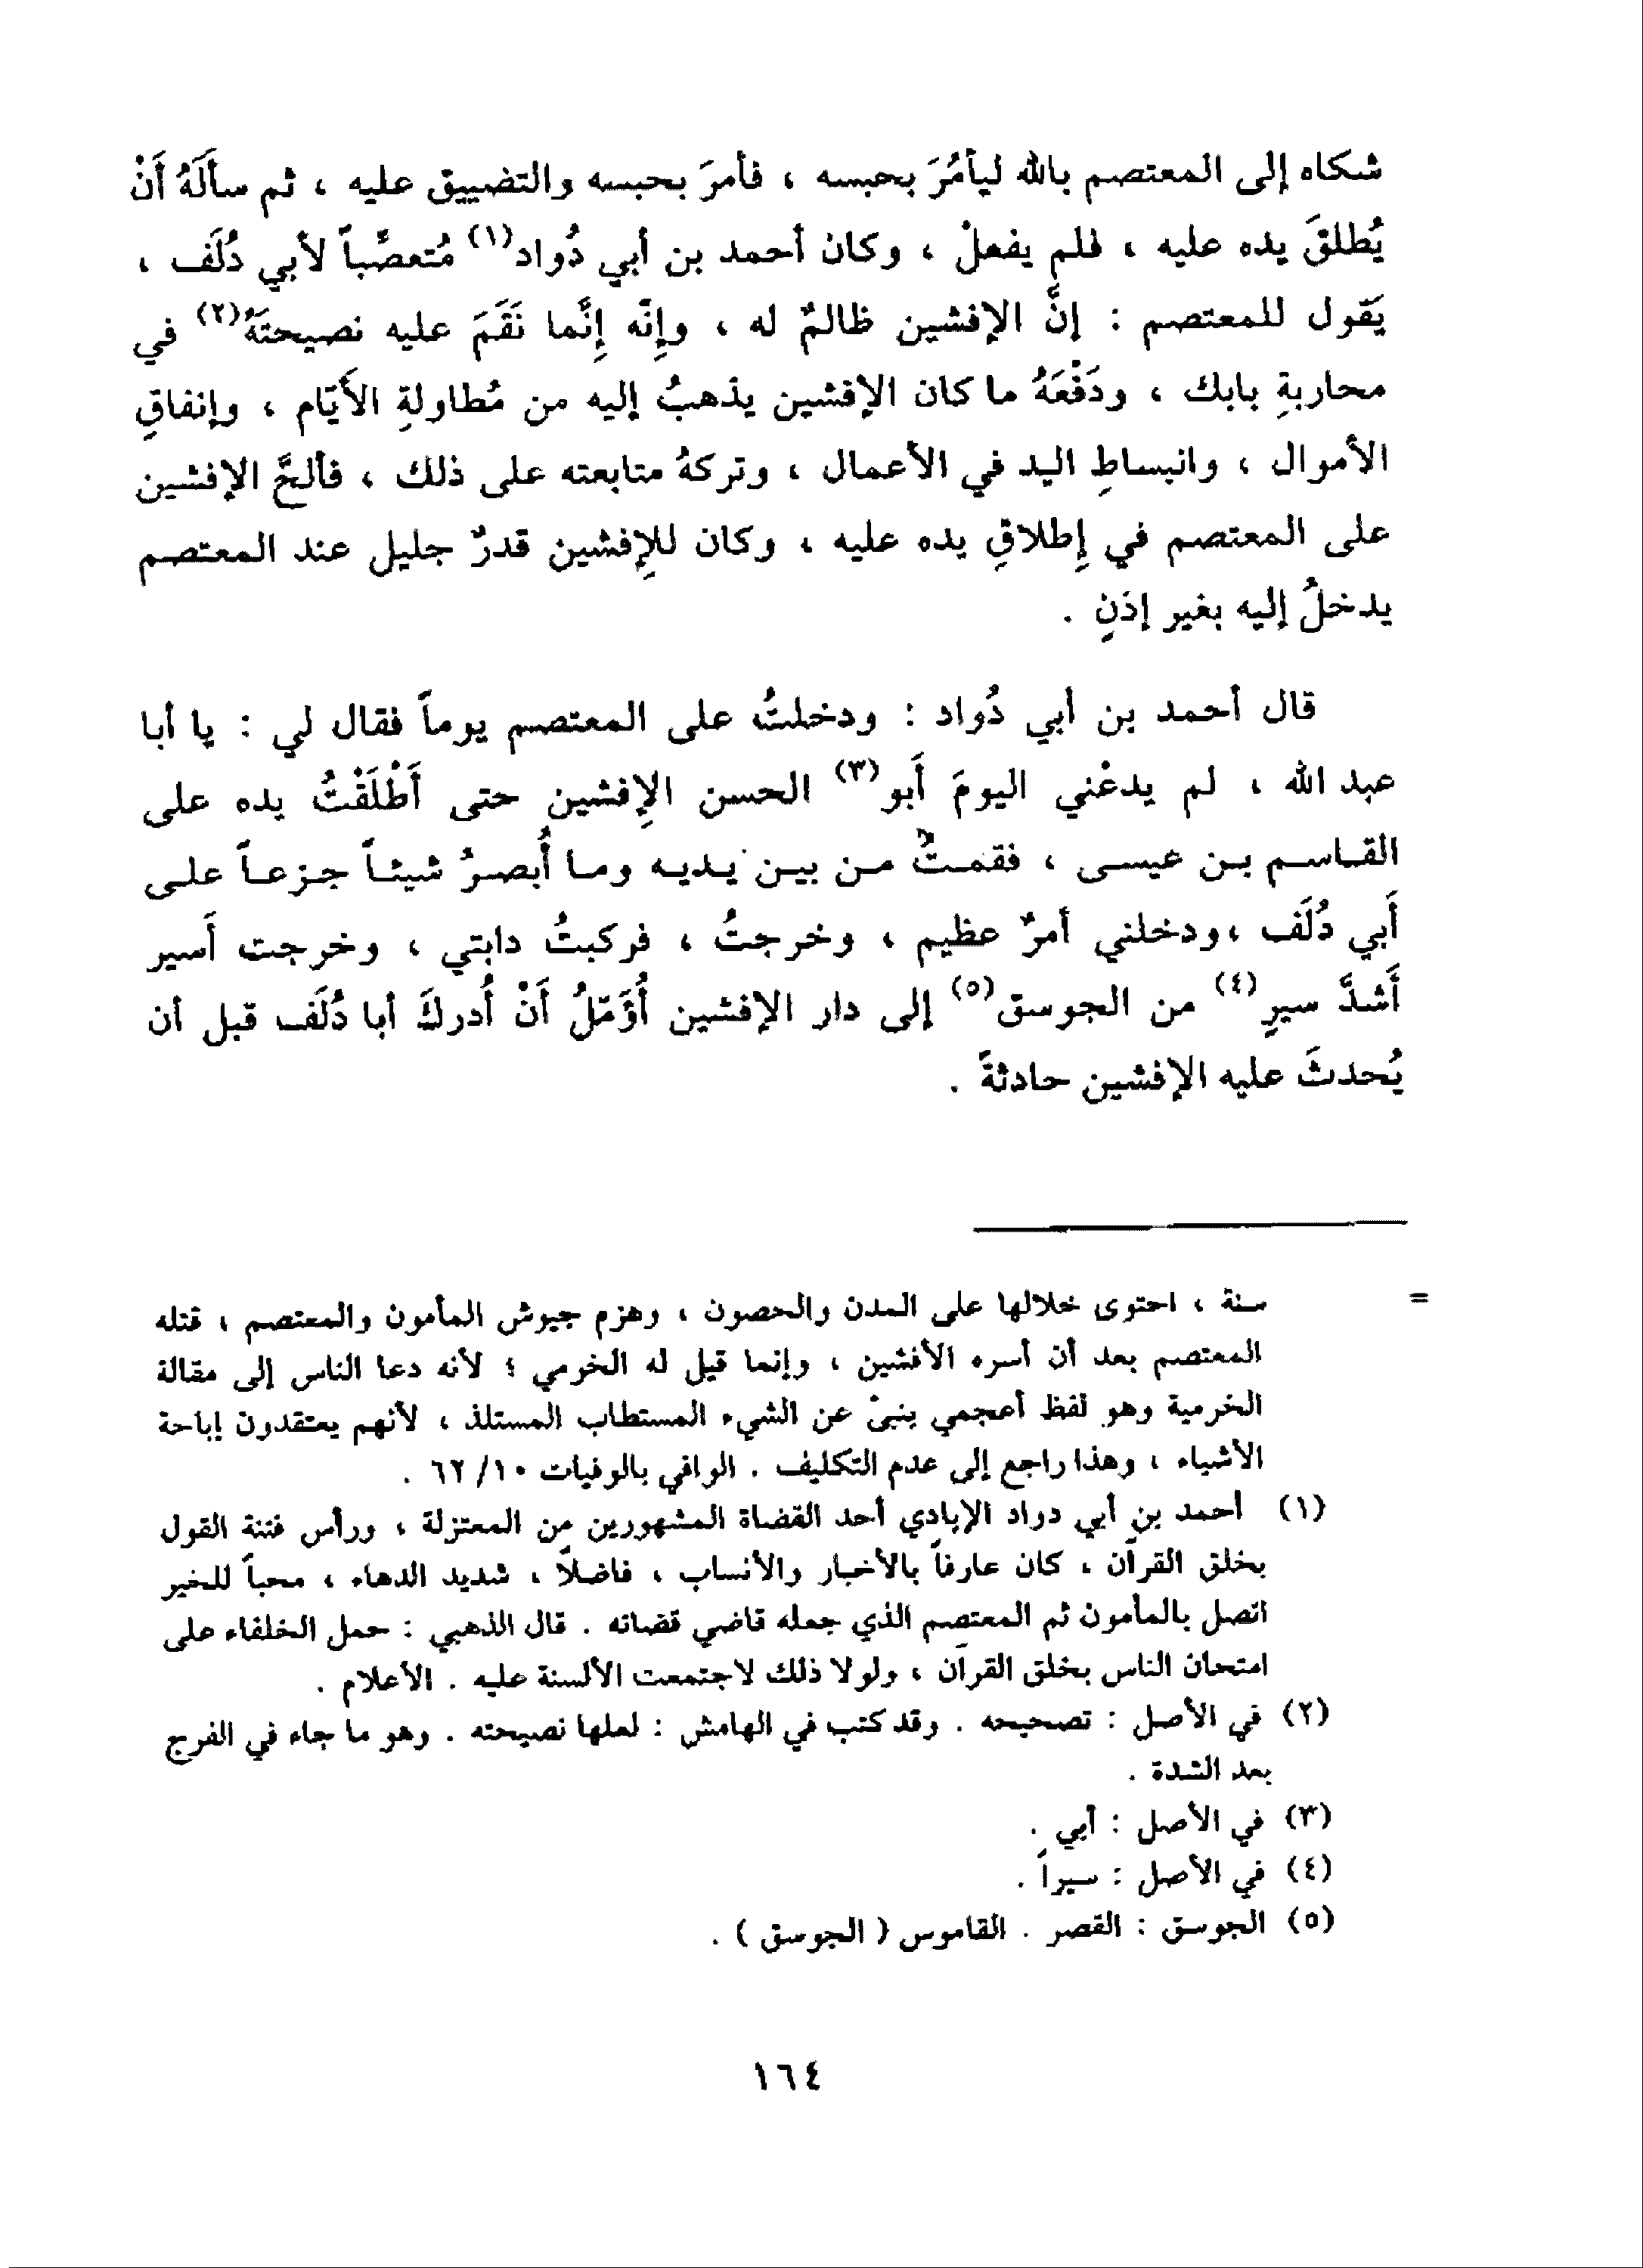 شكاه إلى المعتصم بالله ليأمُرَ بحبسه ، فأمرَ بحبسه والتضييق عليه ، ثم سألَهُ أَنْ
يُطلقَ يده عليه ، فلم يفعلْ ، وكان أحمد بن أبي دُواد(١) مُتعصِّباً لأبي دُلَف ،
يَقول للمعتصم : إنَّ الإفشين ظالمٌ له ، وإِنّه إِنَّما نَقَمَ عليه نصيحتَهُ(٢) في
محاربةِ بابك ، ودَفْعَهُ ما كان الإفشين يذهبُ إليه من مُطاولةِ الأَيّام ، وإنفاقِ
الأموال ، وانبساطِ اليد في الأعمال ، وتركهُ متابعته على ذلك ، فألحَّ الإفشين
على المعتصم في إِطلاقِ يده عليه ، وكان للإِفشين قدرٌ جليل عند المعتصم
يدخلُ إليه بغير إذنٍ .
قال أحمد بن أبي دُواد : ودخلتُ على المعتصم يوماً فقال لي : يا أبا
عبد الله ، لم يدعْني اليومَ أَبو(٣) الحسن الإِفشين حتى أَطْلَقْتُ يده على
القاسم بن عيسى ، فقمتُ من بين يديه وما أُبصرُ شيئاً جزعاً على
أَبي دُلَف ،ودخلني أمرٌ عظيم ، وخرجتُ ، فركبتُ دابتي ، وخرجت أَسير
أَشدَّ سيرٍ(٤) من الجوسق(٥) إلى دار الإفشين أُؤَمّلُ أَنْ أُدركَ أبا دُلَف قبل أن
يُحدثَ عليه الإفشين حادثةً .
= سنة ، احتوى خلالها على المدن والحصون ، وهزم جيوش المأمون والمعتصم ، قتله
المعتصم بعد أن أسره الأفشين ، وإنما قيل له الخرمي ؛ لأنه دعا الناس إلى مقالة
الخرمية وهو لفظ أعجمي ينبئ عن الشيء المستطاب المستلذ ، لأنهم يعتقدون إباحة
الأشياء ، وهذا راجع إلى عدم التكليف . الوافي بالوفيات ١٠/ ٦٢ .
(١) أحمد بن أبي دواد الإيادي أحد القضاة المشهورين من المعتزلة ، ورأس فتنة القول
بخلق القرآن ، كان عارفاً بالأخبار والأنساب ، فاضلاً ، شديد الدهاء ، محباً للخير
اتصل بالمأمون ثم المعتصم الذي جعله قاضي قضاته . قال الذهبي : حمل الخلفاء على
امتحان الناس بخلق القرآن ، ولولا ذلك لاجتمعت الألسنة عليه . الأعلام .
(٢) في الأصل : تصحيحه . وقد كتب في الهامش : لعلها نصيحته . وهو ما جاء في الفرج
بعد الشدة .
(٣) في الأصل : أبي .
(٤) في الأصل : سيراً .
(٥) الجوسق : القصر . القاموس ( الجوسق ) .
١٦٤